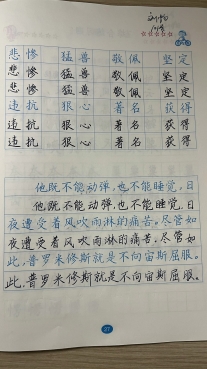 悲惨 猛兽 敬佩 坚定
悲惨 猛兽 敬佩 坚定
悲惨 猛兽 敬佩 坚定
违抗 狠心 著名 获得
违抗 狠心 著名 获得
违抗 狠心 著名 获得
他既不能动弹,也不能睡觉,日
他既不能动弹,也不能睡觉,日
夜遭受着风吹雨淋的痛苦。尽管如
夜遭受着风吹雨淋的痛苦。尽管如
此,普罗米修斯就是不向宙斯屈服。
此,普罗米修斯就是不向宙斯屈服。
27